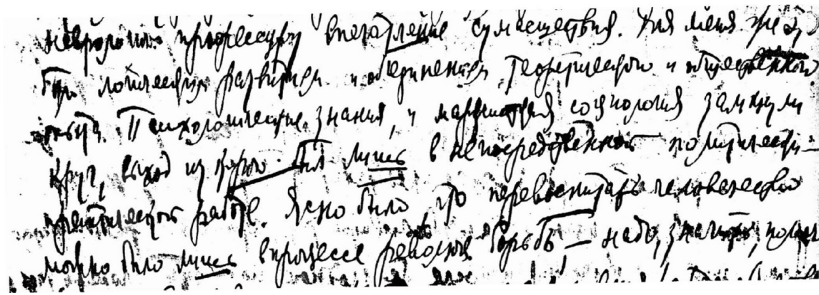 невролога профессору впечатление сумасшествия. Для меня же это
был логический развитием и объединением теоретического и общественного
опыта. Психологические знания, и марксистская социология замкнули
круг, выход из которого был лишь в непосредственной политически-
практической работе. Ясно было, что перевоспитать человечество
можно было лишь в процессе революц. борьбы, — надо, значит,